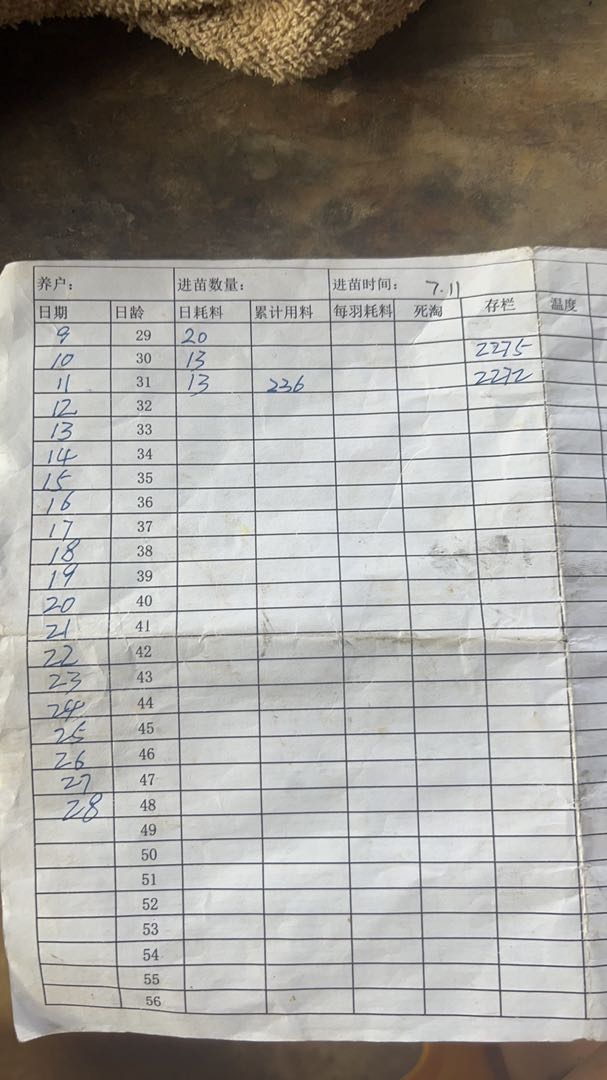 养户： 进苗数量： 进苗时间： 7.11
日期 日龄 日耗料 累计用料 每羽耗料 死淘 存栏 温度
9 29 20
10 30 13 2275
11 31 13 236 2272
12 32
13 33
14 34
15 35
16 36
17 37
18 38
19 39
20 40
21 41
22 42
23 43
24 44
25 45
26 46
27 47
28 48
49
50
51
52
53
54
55
56